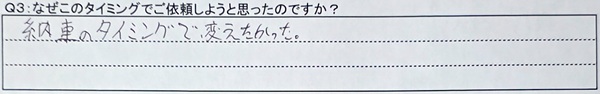 Q3:なぜこのタイミングでご依頼しようと思ったのですか？
納車のタイミングで変えたかった。